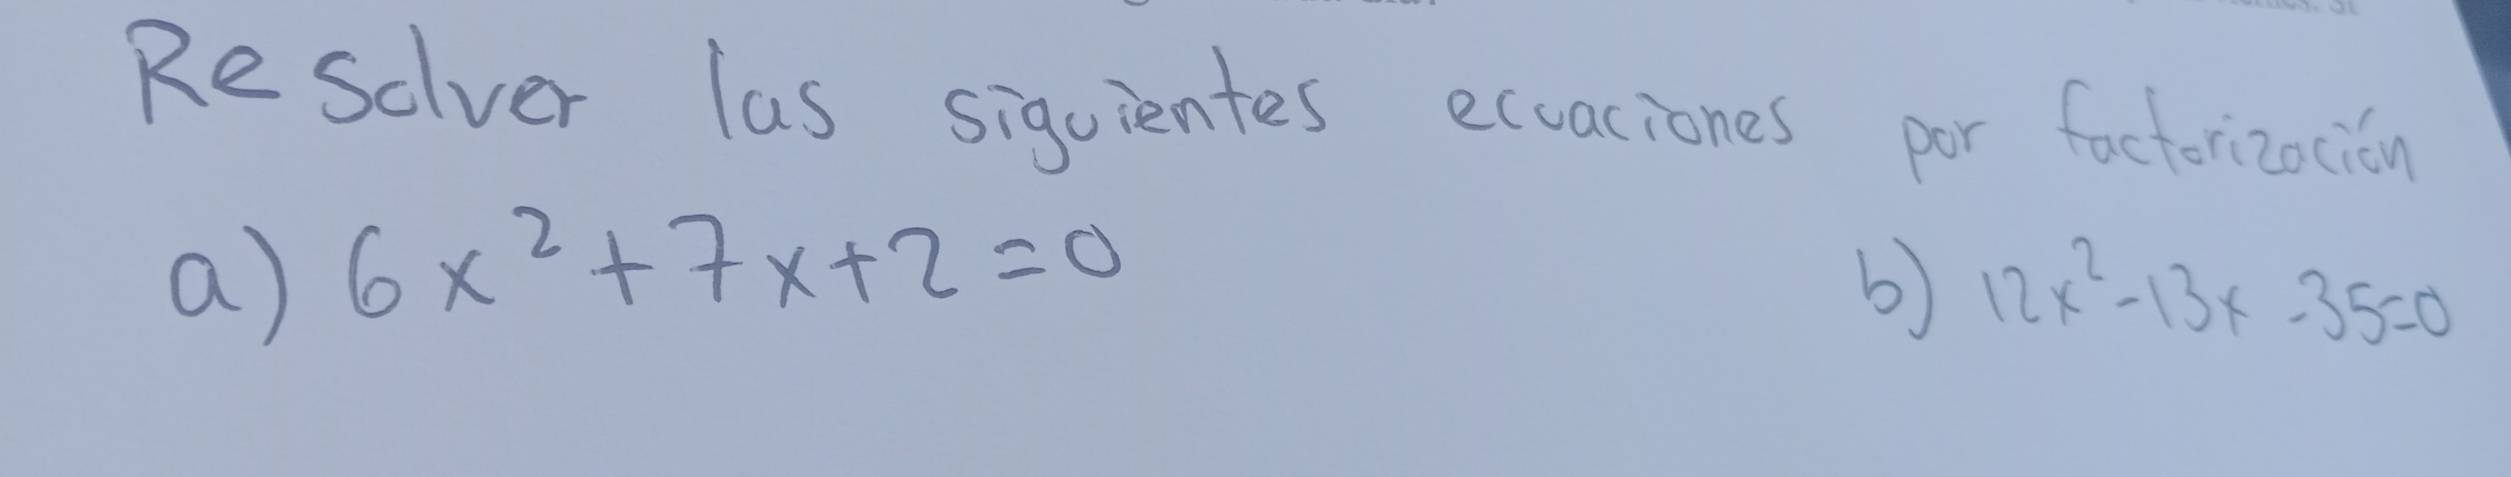 Resolver las siguientes ecuaciones por factorización
a) 6x² + 7x + 2 = 0 b) 12x² - 13x - 35 = 0